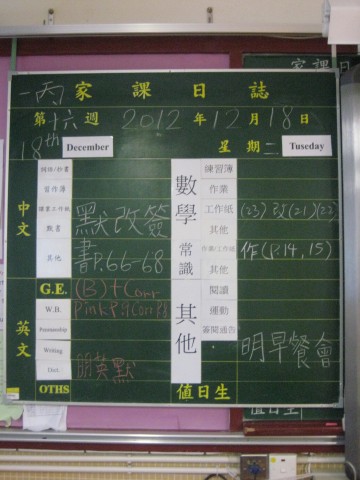 一丙 家課日誌
第十六週 2012年12月18日
18th December 星期二 Tuseday
中文
習作簿
默書 默改簽
其他 書P.66-68
G.E. (B)+Corr
英文
W.B.
Penmanship
Writing
Dict. 明英默
OTHS
數學
練習簿
作業
工作紙 (23)改(21)(22)
其他
常識
作業/工作紙 作(P.14,15)
其他
其他
閱讀
運動
簽閱通告 明早餐會
值日生
家課日
值日生